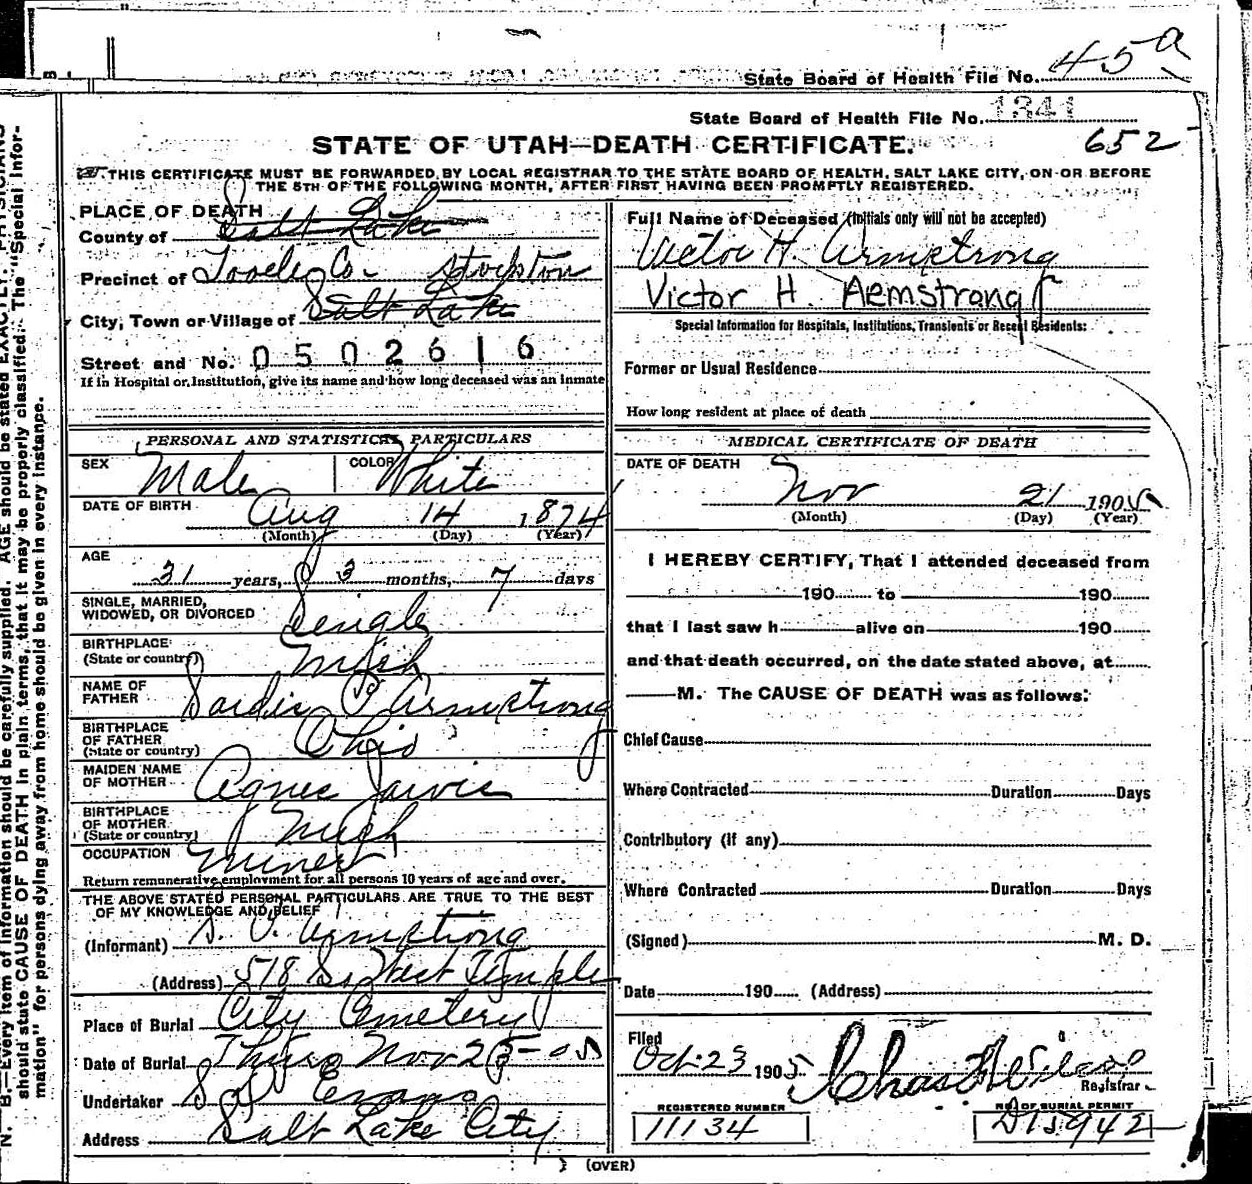 State Board of Health File No. 45a
State Board of Health File No. 1341
652
STATE OF UTAH—DEATH CERTIFICATE.
THIS CERTIFICATE MUST BE FORWARDED BY LOCAL REGISTRAR TO THE STATE BOARD OF HEALTH, SALT LAKE CITY, ON OR BEFORE
THE 5TH OF THE FOLLOWING MONTH, AFTER FIRST HAVING BEEN PROMPTLY REGISTERED.
PLACE OF DEATH
County of Salt Lake
Precinct of Tooele Co. Stockton
City, Town or Village of Salt Lake
Street and No. 0502616
If in Hospital or Institution, give its name and how long deceased was an inmate
PERSONAL AND STATISTICAL PARTICULARS
SEX Male COLOR White
DATE OF BIRTH Aug 14, 1874
(Month) (Day) (Year)
AGE
31 years, 3 months, 7 days
SINGLE, MARRIED,
WIDOWED, OR DIVORCED Single
BIRTHPLACE
(State or country) Mich
NAME OF
FATHER Sardis P Armstrong
BIRTHPLACE
OF FATHER
(State or country) Ohio
MAIDEN NAME
OF MOTHER Agnes Jarvis
BIRTHPLACE
OF MOTHER
(State or country) Mich
OCCUPATION Miner
Return remunerative employment for all persons 10 years of age and over.
THE ABOVE STATED PERSONAL PARTICULARS ARE TRUE TO THE BEST
OF MY KNOWLEDGE AND BELIEF
(Informant) S. P. Armstrong
(Address) 518 So West Temple
Place of Burial City Cemetery
Date of Burial Thurs Nov 23-05
Undertaker Evans
Address Salt Lake City
Full Name of Deceased (Initials only will not be accepted)
Victor H. Armstrong
Victor H. Armstrong
Special Information for Hospitals, Institutions, Transients or Recent Residents:
Former or Usual Residence
How long resident at place of death
MEDICAL CERTIFICATE OF DEATH
DATE OF DEATH
Nov 21 1905
(Month) (Day) (Year)
I HEREBY CERTIFY, That I attended deceased from
190 to 190
that I last saw h alive on 190
and that death occurred, on the date stated above, at
M. The CAUSE OF DEATH was as follows:
Chief Cause
Where Contracted Duration Days
Contributory (if any)
Where Contracted Duration Days
(Signed) M. D.
Date 190 (Address)
Filed
Oct. 23 1905
Registrar
REGISTERED NUMBER
11134
NO. OF BURIAL PERMIT
D15942
(OVER)
N. B.—Every item of information should be carefully supplied. AGE should be stated EXACTLY. PHYSICIANS
should state CAUSE OF DEATH in plain terms, that it may be properly classified. The "Special Infor-
mation" for persons dying away from home should be given in every instance.